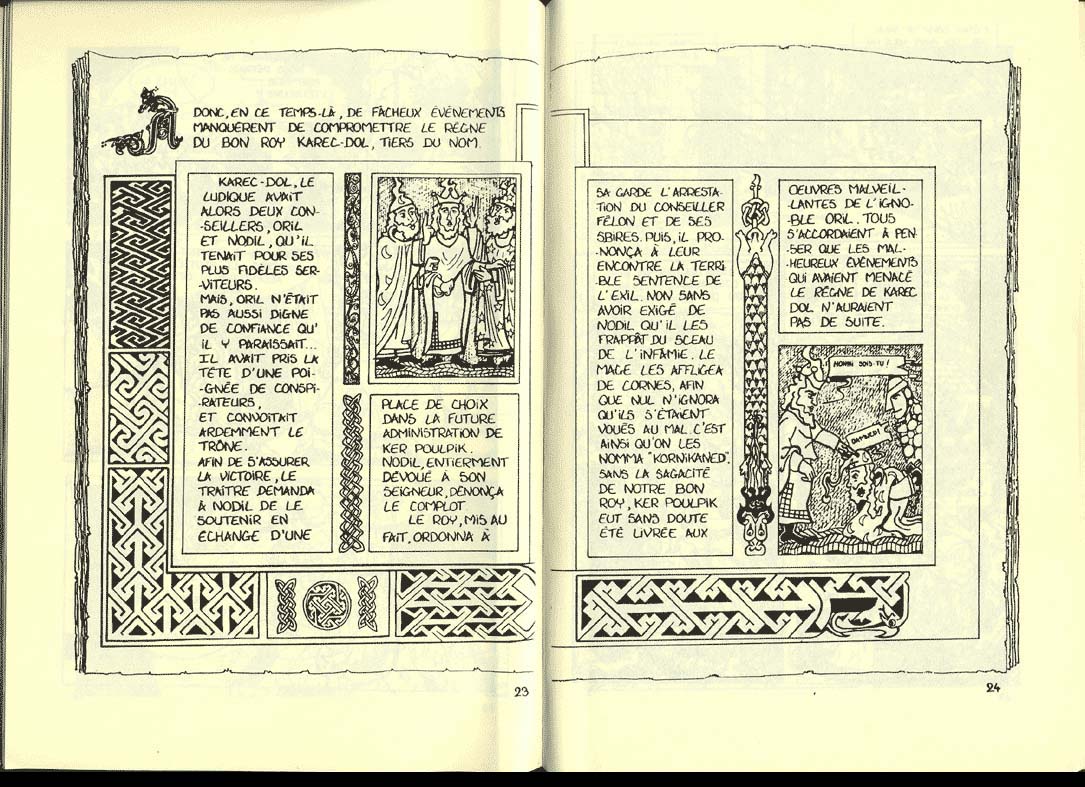 A
DONC, EN CE TEMPS-LÀ, DE FÂCHEUX ÉVÉNEMENTS
MANQUÈRENT DE COMPROMETTRE LE RÈGNE
DU BON ROY KAREC-DOL, TIERS DU NOM.
KAREC-DOL, LE
LUDIQUE AVAIT
ALORS DEUX CON-
-SEILLERS, ORIL
ET NODIL, QU'IL
TENAIT POUR SES
PLUS FIDÈLES SER-
-VITEURS.
MAIS, ORIL N'ÉTAIT
PAS AUSSI DIGNE
DE CONFIANCE QU'
IL Y PARAISSAIT...
IL AVAIT PRIS LA
TÊTE D'UNE POI-
-GNÉE DE CONSPI-
-RATEURS,
ET CONVOITAIT
ARDEMMENT LE
TRÔNE.
AFIN DE S'ASSURER
LA VICTOIRE, LE
TRAÎTRE DEMANDA
À NODIL DE LE
SOUTENIR EN
ÉCHANGE D'UNE
PLACE DE CHOIX
DANS LA FUTURE
ADMINISTRATION DE
KER POULPIK.
NODIL, ENTIERMENT
DÉVOUÉ À SON
SEIGNEUR, DÉNONÇA
LE COMPLOT.
LE ROY, MIS AU
FAIT, ORDONNA À
23
SA GARDE L'ARRESTA-
-TION DU CONSEILLER
FÉLON ET DE SES
SBIRES. PUIS, IL PRO-
-NONÇA À LEUR
ENCONTRE LA TERRI
BLE SENTENCE DE
L'EXIL. NON SANS
AVOIR EXIGÉ DE
NODIL QU'IL LES
FRAPPÂT DU SCEAU
DE L'INFAMIE. LE
MAGE LES AFFLIGEA
DE CORNES, AFIN
QUE NUL N'IGNORA
QU'ILS S'ÉTAIENT
VOUÉS AU MAL. C'EST
AINSI QU'ON LES
NOMMA "KORNIKANED".
SANS LA SAGACITÉ
DE NOTRE BON
ROY, KER POULPIK
EUT SANS DOUTE
ÉTÉ LIVRÉE AUX
OEUVRES MALVEIL-
-LANTES DE L'IGNO-
-BLE ORIL. TOUS
S'ACCORDAIENT À PEN-
-SER QUE LES MAL-
-HEUREUX ÉVÉNEMENTS
QUI AVAIENT MENACÉ
LE RÈGNE DE KAREC
DOL N'AURAIENT
PAS DE SUITE.
HONNI SOIS-TU !
24